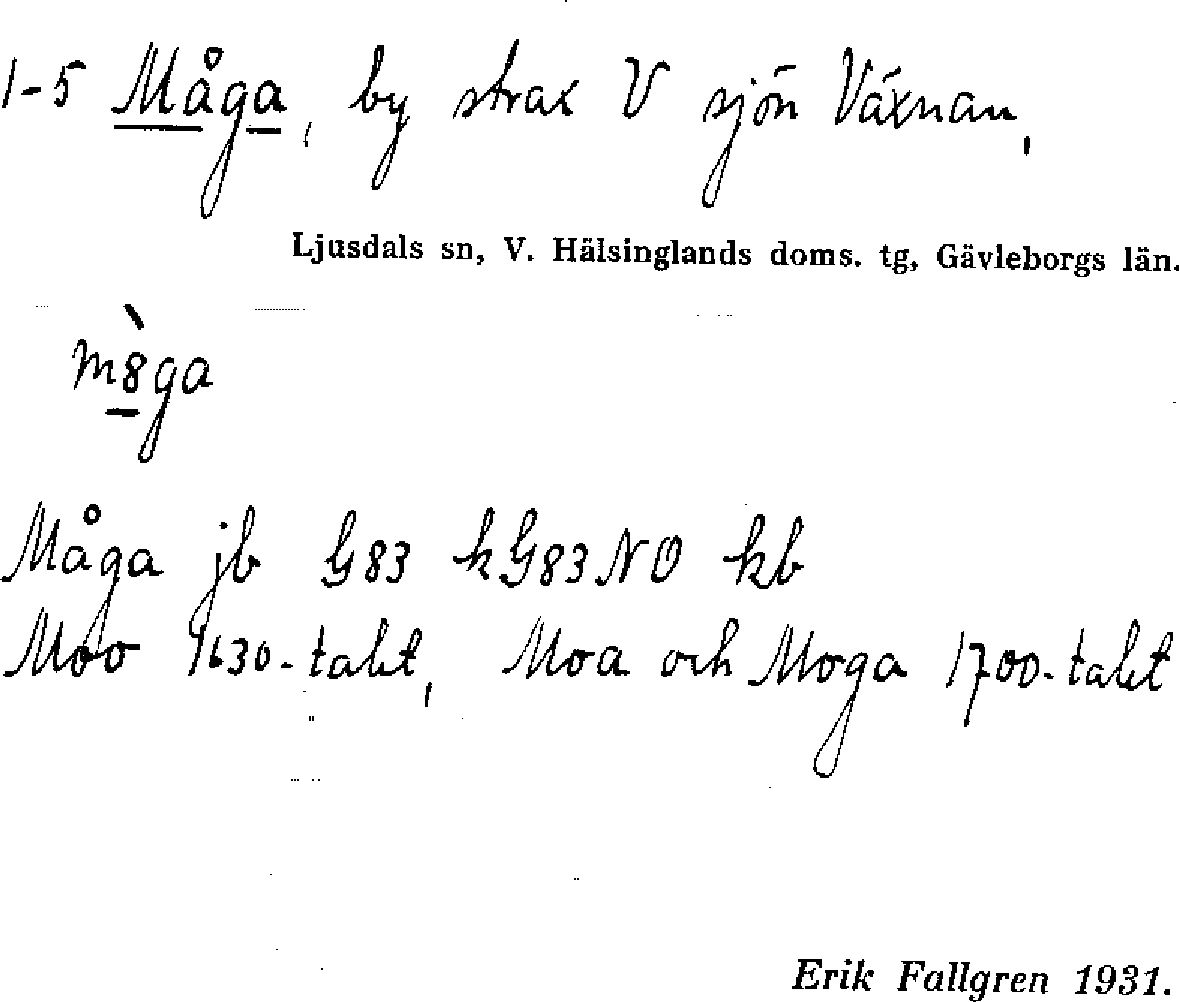 1-5 Måga, by strax V sjön Växnan,
Ljusdals sn, V. Hälsinglands doms. tg, Gävleborgs län.
m8̀ga
Måga jb G83 kG83NO kb
Moo 1630-talet, Moa och Moga 1700-talet
Erik Fallgren 1931.